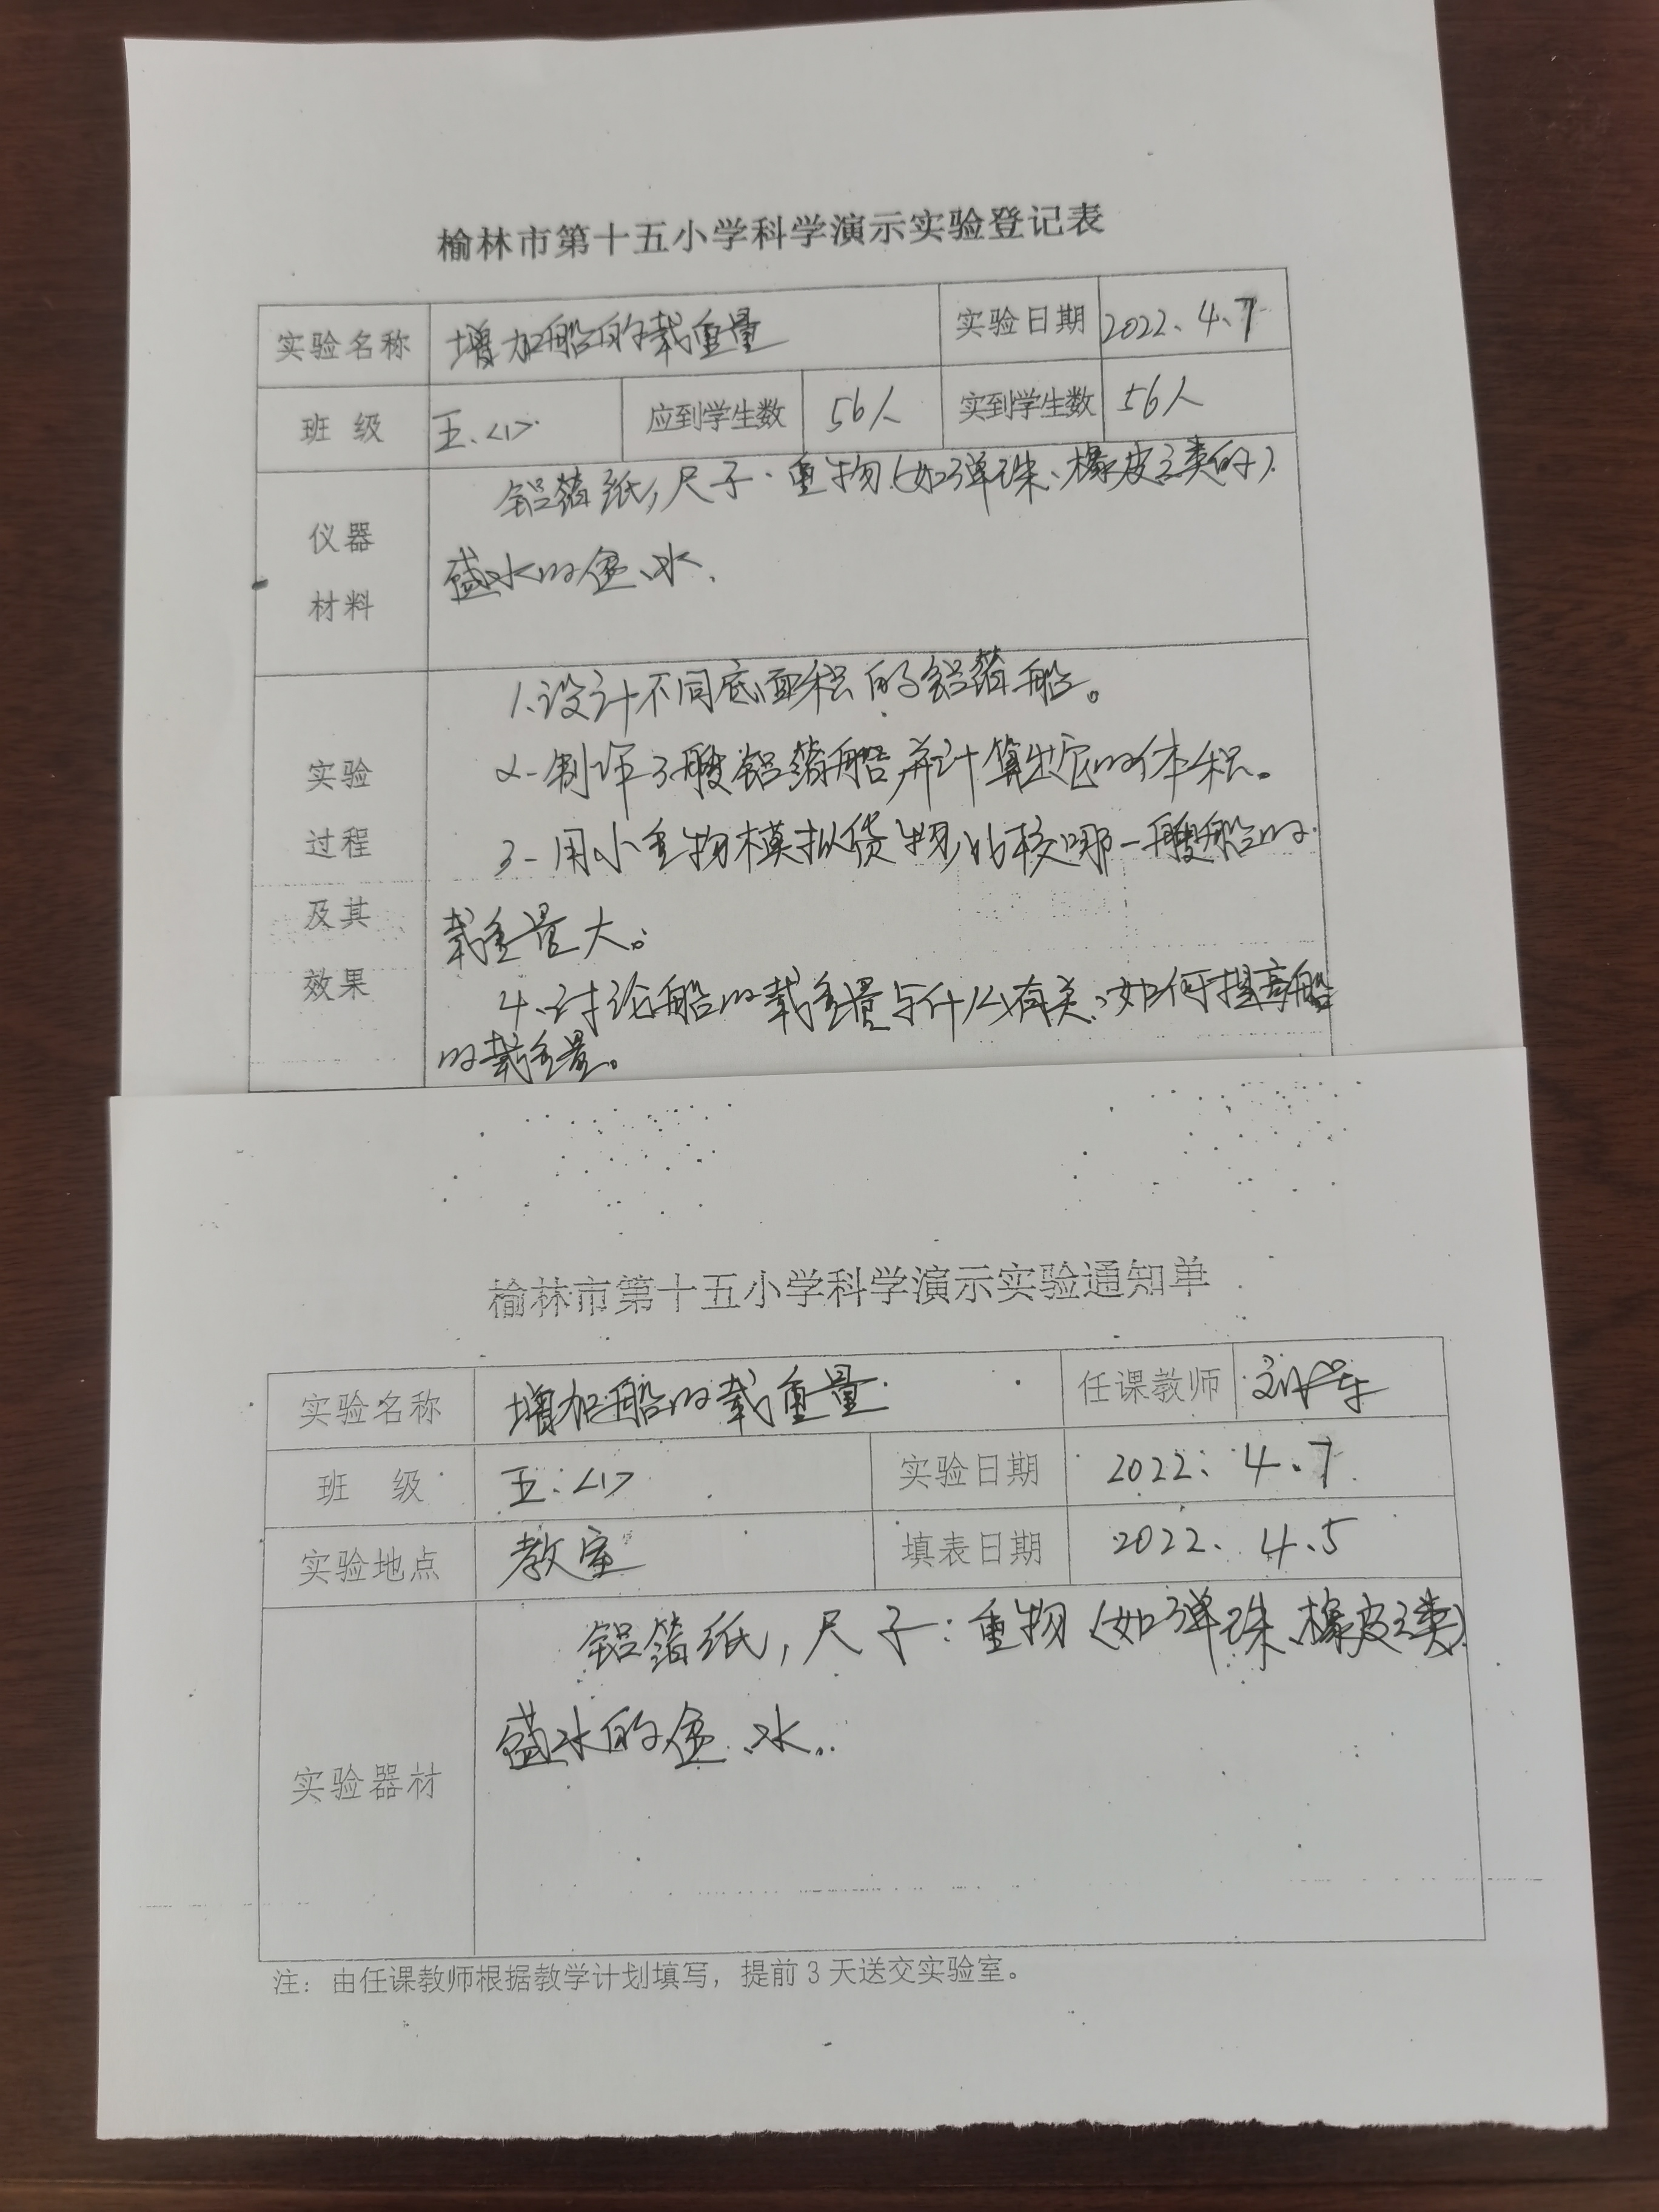 榆林市第十五小学科学演示实验登记表
实验名称 增加船的载重量 实验日期 2022、4、7
班级 五.<1> 应到学生数 56人 实到学生数 56人
仪器 铝箔纸,尺子、重物(如弹珠、橡皮之类的)
材料 盛水的盒、水.
1.设计不同底面积的铝箔船。
实验 2-制作3艘铝箔船并计算出它的体积。
过程 3-用小重物模拟货物,比较哪一艘船的
及其 载重量大。
效果 4、讨论船的载重量与什么有关,如何提高船
的载重量。
榆林市第十五小学科学演示实验通知单
实验名称 增加船的载重量. 任课教师
班 级 五.<1> 实验日期 2022、4、7
实验地点 教室 填表日期 2022、4、5
铝箔纸,尺子:重物(如弹珠、橡皮之类)
盛水的盒、水.
实验器材
注:由任课教师根据教学计划填写,提前3天送交实验室。